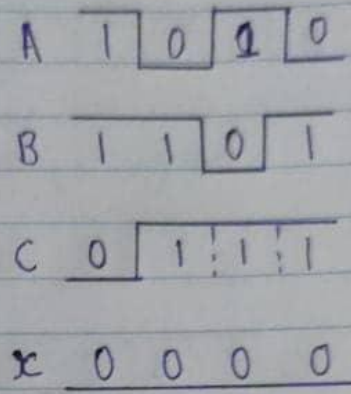 A 1 0 1 0
B 1 1 0 1
C 0 1 1 1
x 0 0 0 0